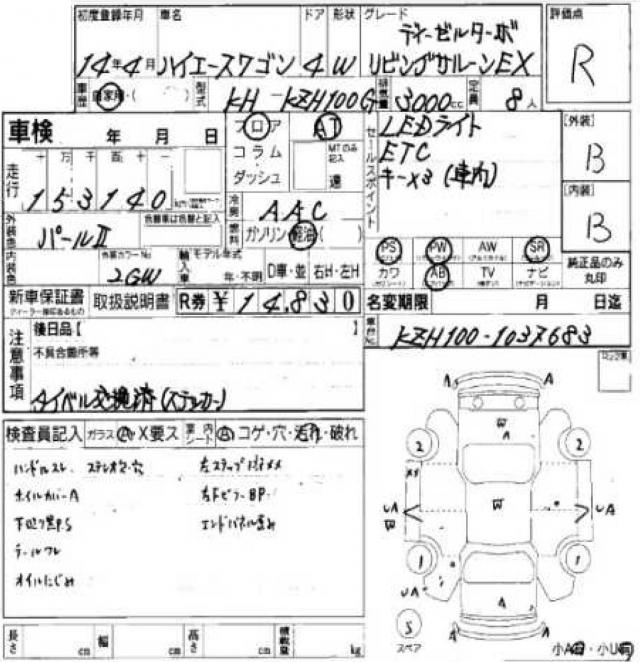 初度登録年月 車名 ドア 形状 グレード 評価点
14年4月 ハイエースワゴン 4 W ディーゼルターボ リビングサルーンEX R
車歴 自家用・( ) 型式 KH-KZH100G 排気量 3000cc 定員 8人
車検 年 月 日
フロア AT
コラム MTのみ記入
ダッシュ 速
セールスポイント
LEDライト
ETC
キー×3 (車内)
[外装]
B
[内装]
B
走行 十万千百十一
153140km
冷房 AAC
外装色 パールⅡ 色替車は色替と記入
燃料 ガソリン 軽油 ( )
PS PW AW SR
カワ AB TV ナビ
純正品のみ丸印
内装色 色替カラーNo 2GW
輸入車 モデル年式 年・不明 D車・並 右H・左H
新車保証書 取扱説明書 R券 ¥14,830
名変期限 月 日迄
車台No. KZH100-1037683
注意事項
後日品【 】
不具合箇所等
タイベル交換済(ステッカー)
検査員記入 ガラス A・X要ス 内張シート A コゲ・穴・汚れ・破れ
ハンドルスレ ステレオ
ホイルカバーA
下回り黒P.S
テールワレ
オイルにじみ
左ステップ
右Fピラー BP
エンドパネル歪み
A A
W
A
2 2
XX
W
UA
W
UA
1 1
UA
A
A
A A
S
スペア
小A 小U
長さ cm 幅 cm 高さ cm 積載量 kg